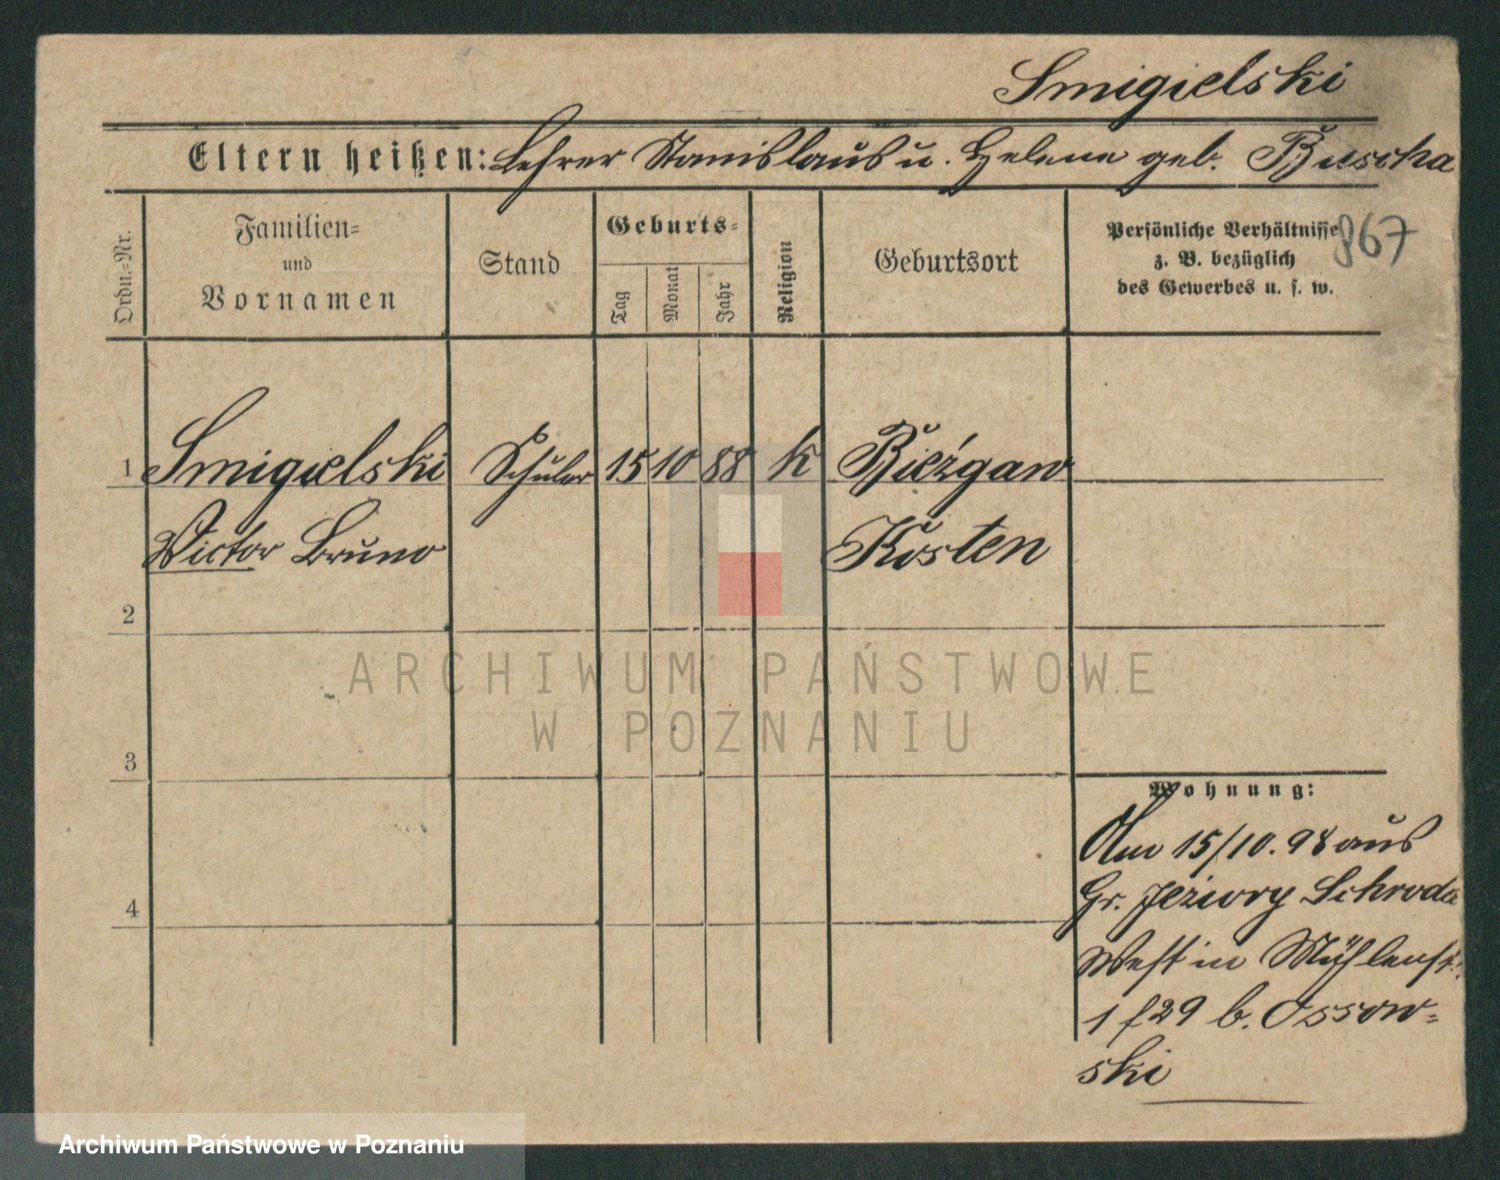 Smigielski
Eltern heißen: Lehrer Stanislaus u. Helene geb. Buscha
Ordn.-Nr.
Familien-
und
Vornamen
Stand
Geburts-
Tag
Monat
Jahr
Religion
Geburtsort
Persönliche Verhältnisse
z. B. bezüglich
des Gewerbes u. s. w.
867
1 Smigielski Schüler 15 10 88 k Bieżgaw
Victor Bruno Kosten
2
3
4
Wohnung:
Am 15/10. 98 aus
Gr. Jeziory Schroda
West in Mühlenst.
29 b. Ossow-
ski
ARCHIWUM PAŃSTWOWE
W POZNANIU
Archiwum Państwowe w Poznaniu